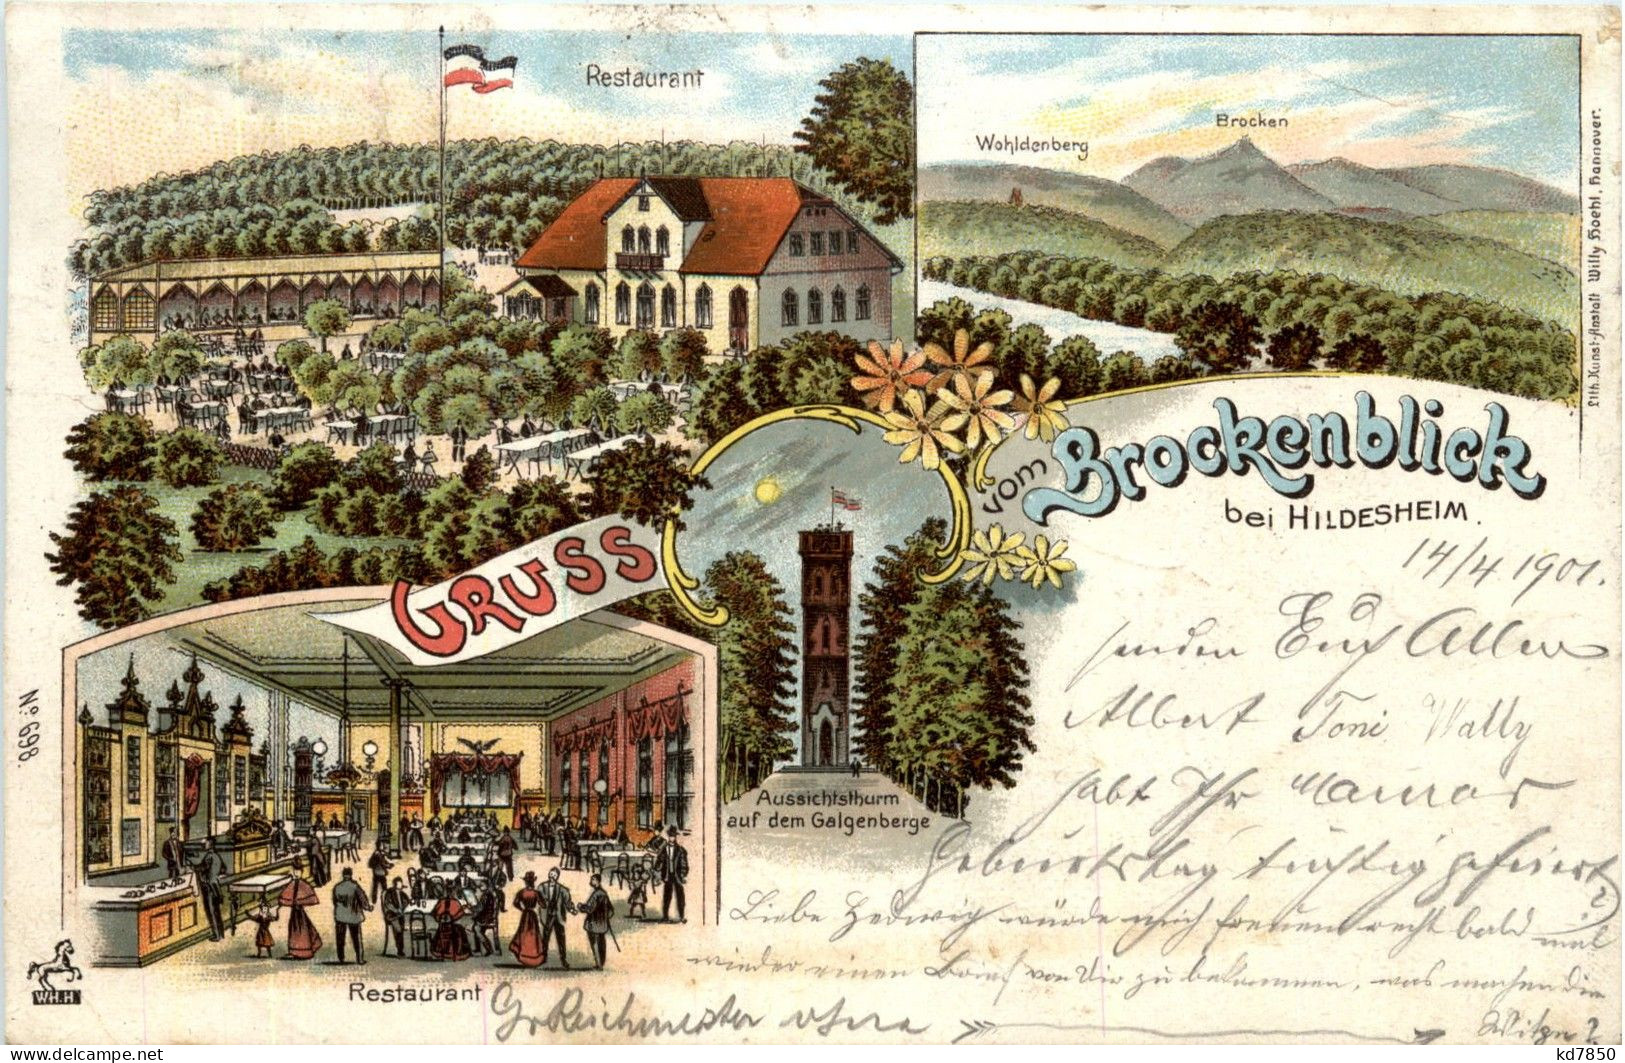 Restaurant
Wohldenberg
Brocken
Lith. Kunst-Anstalt Willy Hoehl, Hannover.
GRUSS
vom Brockenblick
bei HILDESHEIM.
Aussichtsthurm
auf dem Galgenberge
No: 698.
WH.H
Restaurant
14/4 1901.
senden Euch Allen
Albert Toni Wally
habt Ihr Mamas
Geburtstag tüchtig gefeiert?
Liebe Hedwig würde mich freuen recht bald mal
wieder einen Brief von Dir zu bekommen, was machen die
Witze?
kd7850